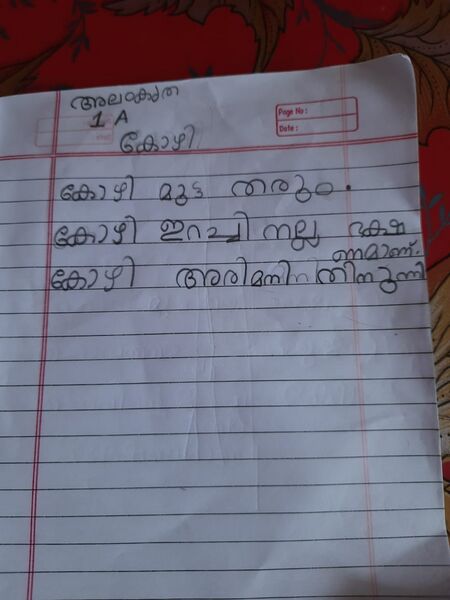 അലംകൃത
1 A
Page No :
Date :
കോഴി
കോഴി മുട്ട തരും.
കോഴി ഇറച്ചി നല്ല ഭക്ഷ
ണമാണ്.
കോഴി അരിമനി തിന്നുന്നി